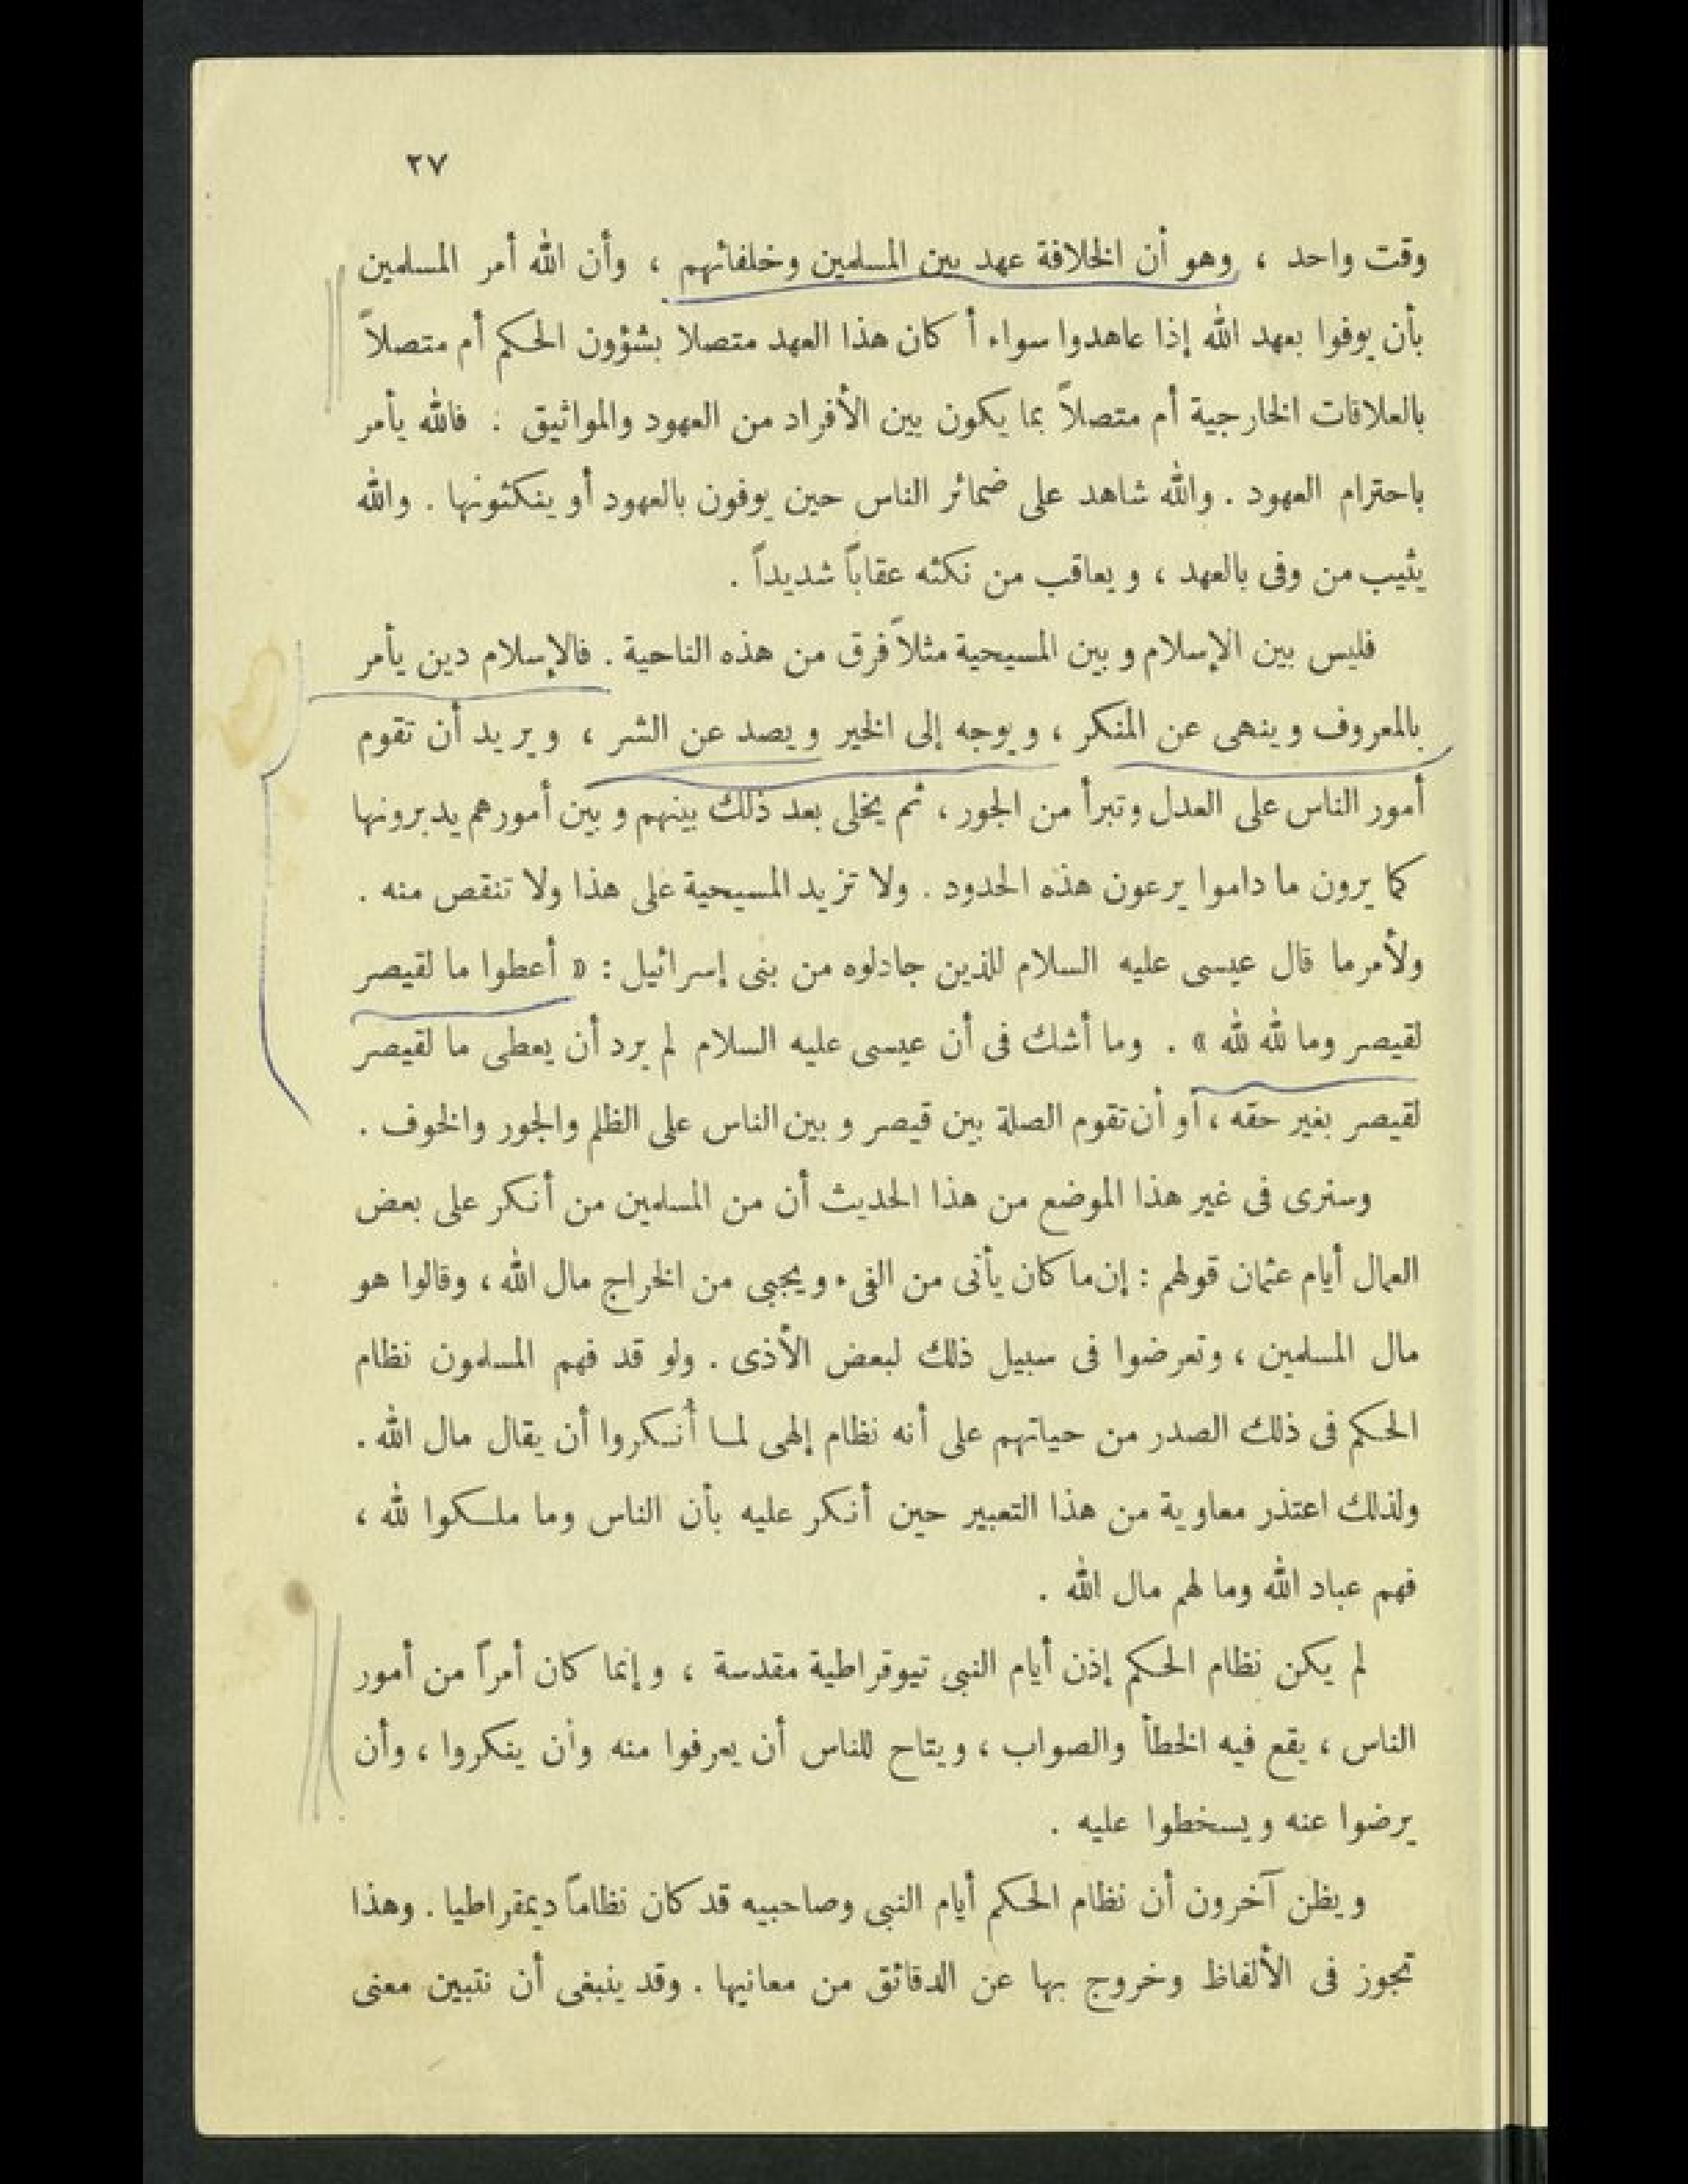 ٢٧
وقت واحد ، وهو أن الخلافة عهد بين المسلمين وخلفائهم ، وأن الله أمر المسلمين
بأن يوفوا بعهد الله إذا عاهدوا سواء أ كان هذا العهد متصلا بشؤون الحكم أم متصلاً
بالعلاقات الخارجية أم متصلاً بما يكون بين الأفراد من العهود والمواثيق : فالله يأمر
باحترام العهود . والله شاهد على ضمائر الناس حين يوفون بالعهود أو ينكثونها . والله
يثيب من وفى بالعهد ، ويعاقب من نكثه عقاباً شديداً .
فليس بين الإسلام وبين المسيحية مثلاً فرق من هذه الناحية . فالإسلام دين يأمر
بالمعروف وينهى عن المنكر ، ويوجه إلى الخير ويصد عن الشر ، ويريد أن تقوم
أمور الناس على العدل وتبرأ من الجور ، ثم يخلى بعد ذلك بينهم وبين أمورهم يدبرونها
كما يرون ما داموا يرعون هذه الحدود . ولا تزيد المسيحية على هذا ولا تنقص منه .
ولأمر ما قال عيسى عليه السلام للذين جادلوه من بنى إسرائيل : « أعطوا ما لقيصر
لقيصر وما لله لله » . وما أشك فى أن عيسى عليه السلام لم يرد أن يعطى ما لقيصر
لقيصر بغير حقه ، أو أن تقوم الصلة بين قيصر وبين الناس على الظلم والجور والخوف .
وسنرى فى غير هذا الموضع من هذا الحديث أن من المسلمين من أنكر على بعض
العمال أيام عثمان قولهم : إن ما كان يأتى من الفىء ويجبى من الخراج مال الله ، وقالوا هو
مال المسلمين ، وتعرضوا فى سبيل ذلك لبعض الأذى . ولو قد فهم المسلمون نظام
الحكم فى ذلك الصدر من حياتهم على أنه نظام إلهى لما أنكروا أن يقال مال الله .
ولذلك اعتذر معاوية من هذا التعبير حين أنكر عليه بأن الناس وما ملكوا لله ،
فهم عباد الله وما لهم مال الله .
لم يكن نظام الحكم إذن أيام النبى تيوقراطية مقدسة ، وإنما كان أمراً من أمور
الناس ، يقع فيه الخطأ والصواب ، ويتاح للناس أن يعرفوا منه وأن ينكروا ، وأن
يرضوا عنه ويسخطوا عليه .
ويظن آخرون أن نظام الحكم أيام النبى وصاحبيه قد كان نظاماً ديمقراطيا . وهذا
تجوز فى الألفاظ وخروج بها عن الدقائق من معانيها . وقد ينبغى أن نتبين معنى